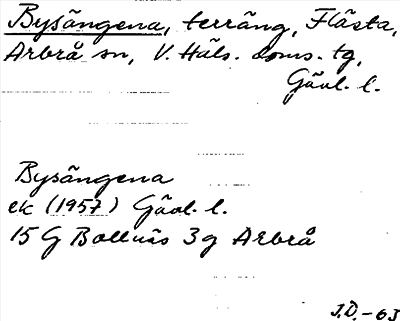 Bysängena, terräng, Flästa,
Arbrå sn, V. Häls. doms. tg,
Gävl. l.
Bysängena
ek (1957) Gävl. l.
15 G Bollnäs 3g Arbrå
J.D. -63